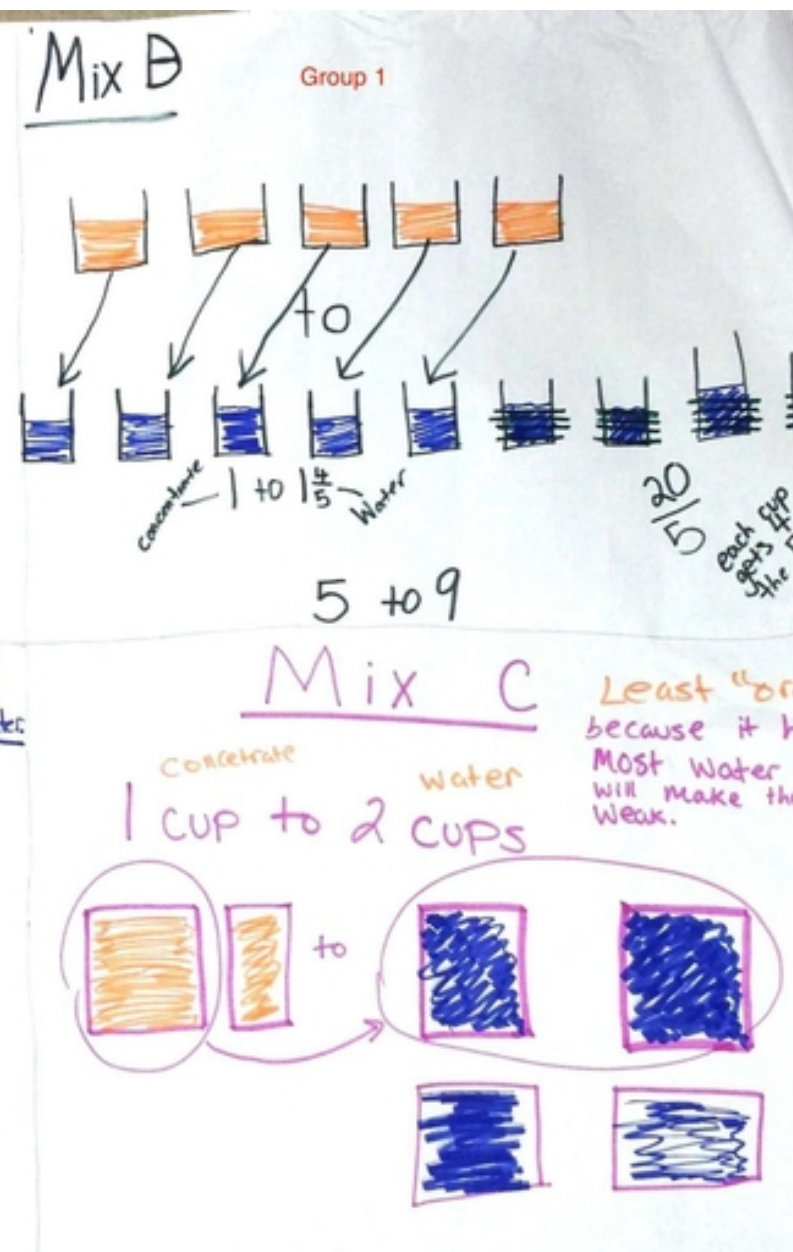 Mix B
Group 1
to
concentrate – 1 to 1 4/5 – Water
20/5
each cup
gets 4
the
5 to 9
Mix C
Least "or
because it h
Most water
will make the
weak.
concetrate
water
1 cup to 2 cups
to